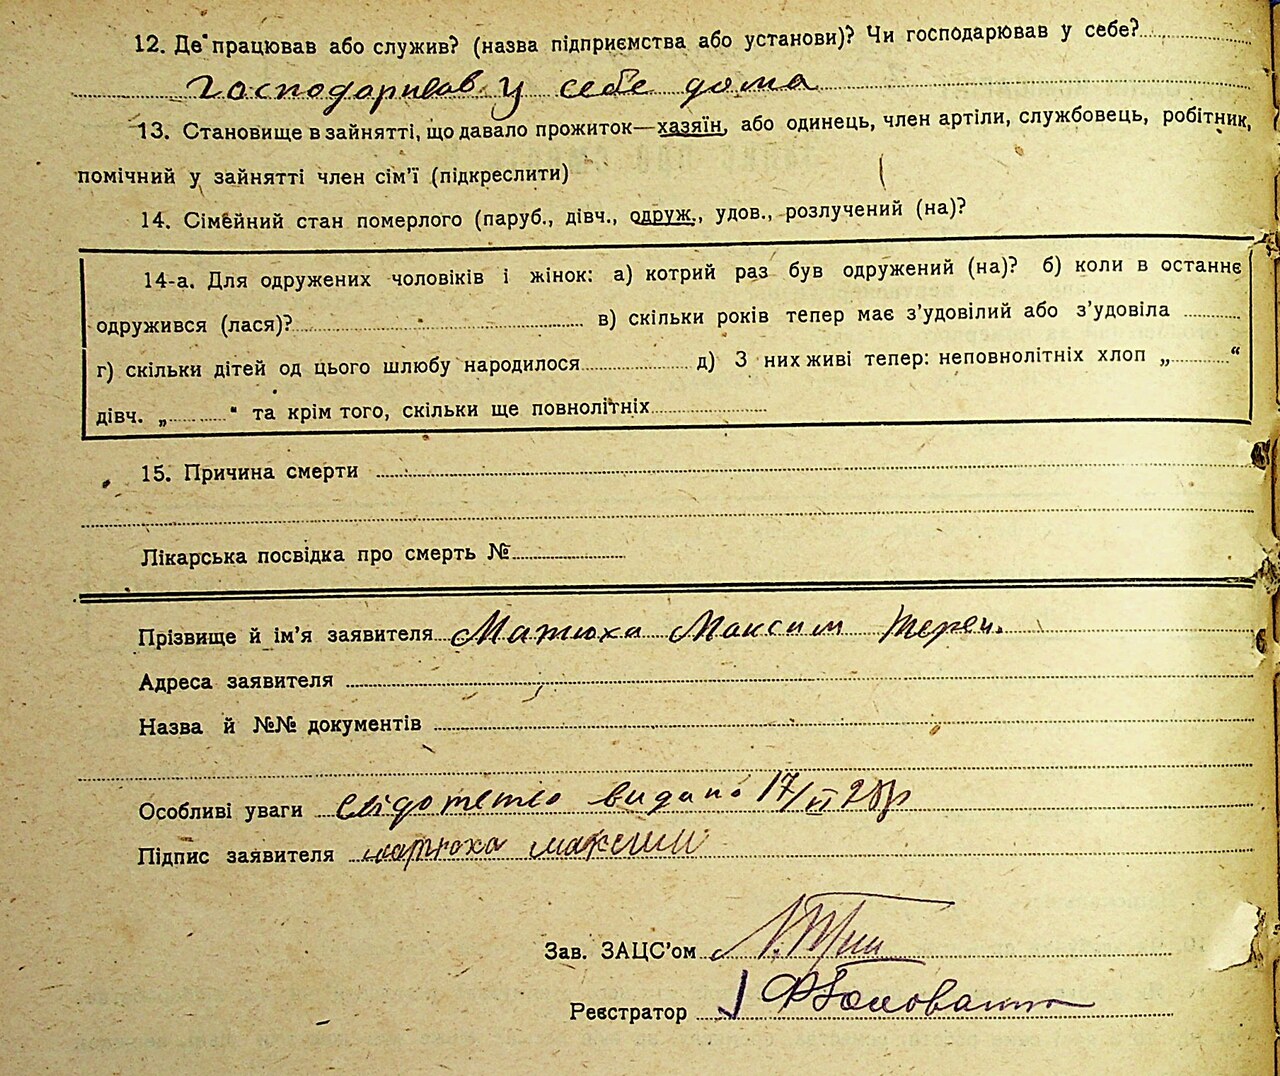 12. Де працював або служив? (назва підприємства або установи)? Чи господарював у себе?
Господарював у себе дома
13. Становище в зайнятті, що давало прожиток—хазяїн, або одинець, член артіли, службовець, робітник,
помічний у зайнятті член сім'ї (підкреслити)
14. Сімейний стан померлого (паруб., дівч., одруж., удов., розлучений (на)?
14-а. Для одружених чоловіків і жінок: а) котрий раз був одружений (на)? б) коли в останнє
одружився (лася)? в) скільки років тепер має з'удовілий або з'удовіла
г) скільки дітей од цього шлюбу народилося д) З них живі тепер: неповнолітніх хлоп „ “
дівч. „ “ та крім того, скільки ще повнолітніх
15. Причина смерти
Лікарська посвідка про смерть №
Прізвище й ім'я заявителя Матюха Максим Терен.
Адреса заявителя
Назва й №№ документів
Особливі уваги видано 17/
Підпис заявителя матюха максим
Зав. ЗАЦС'ом
Реєстратор